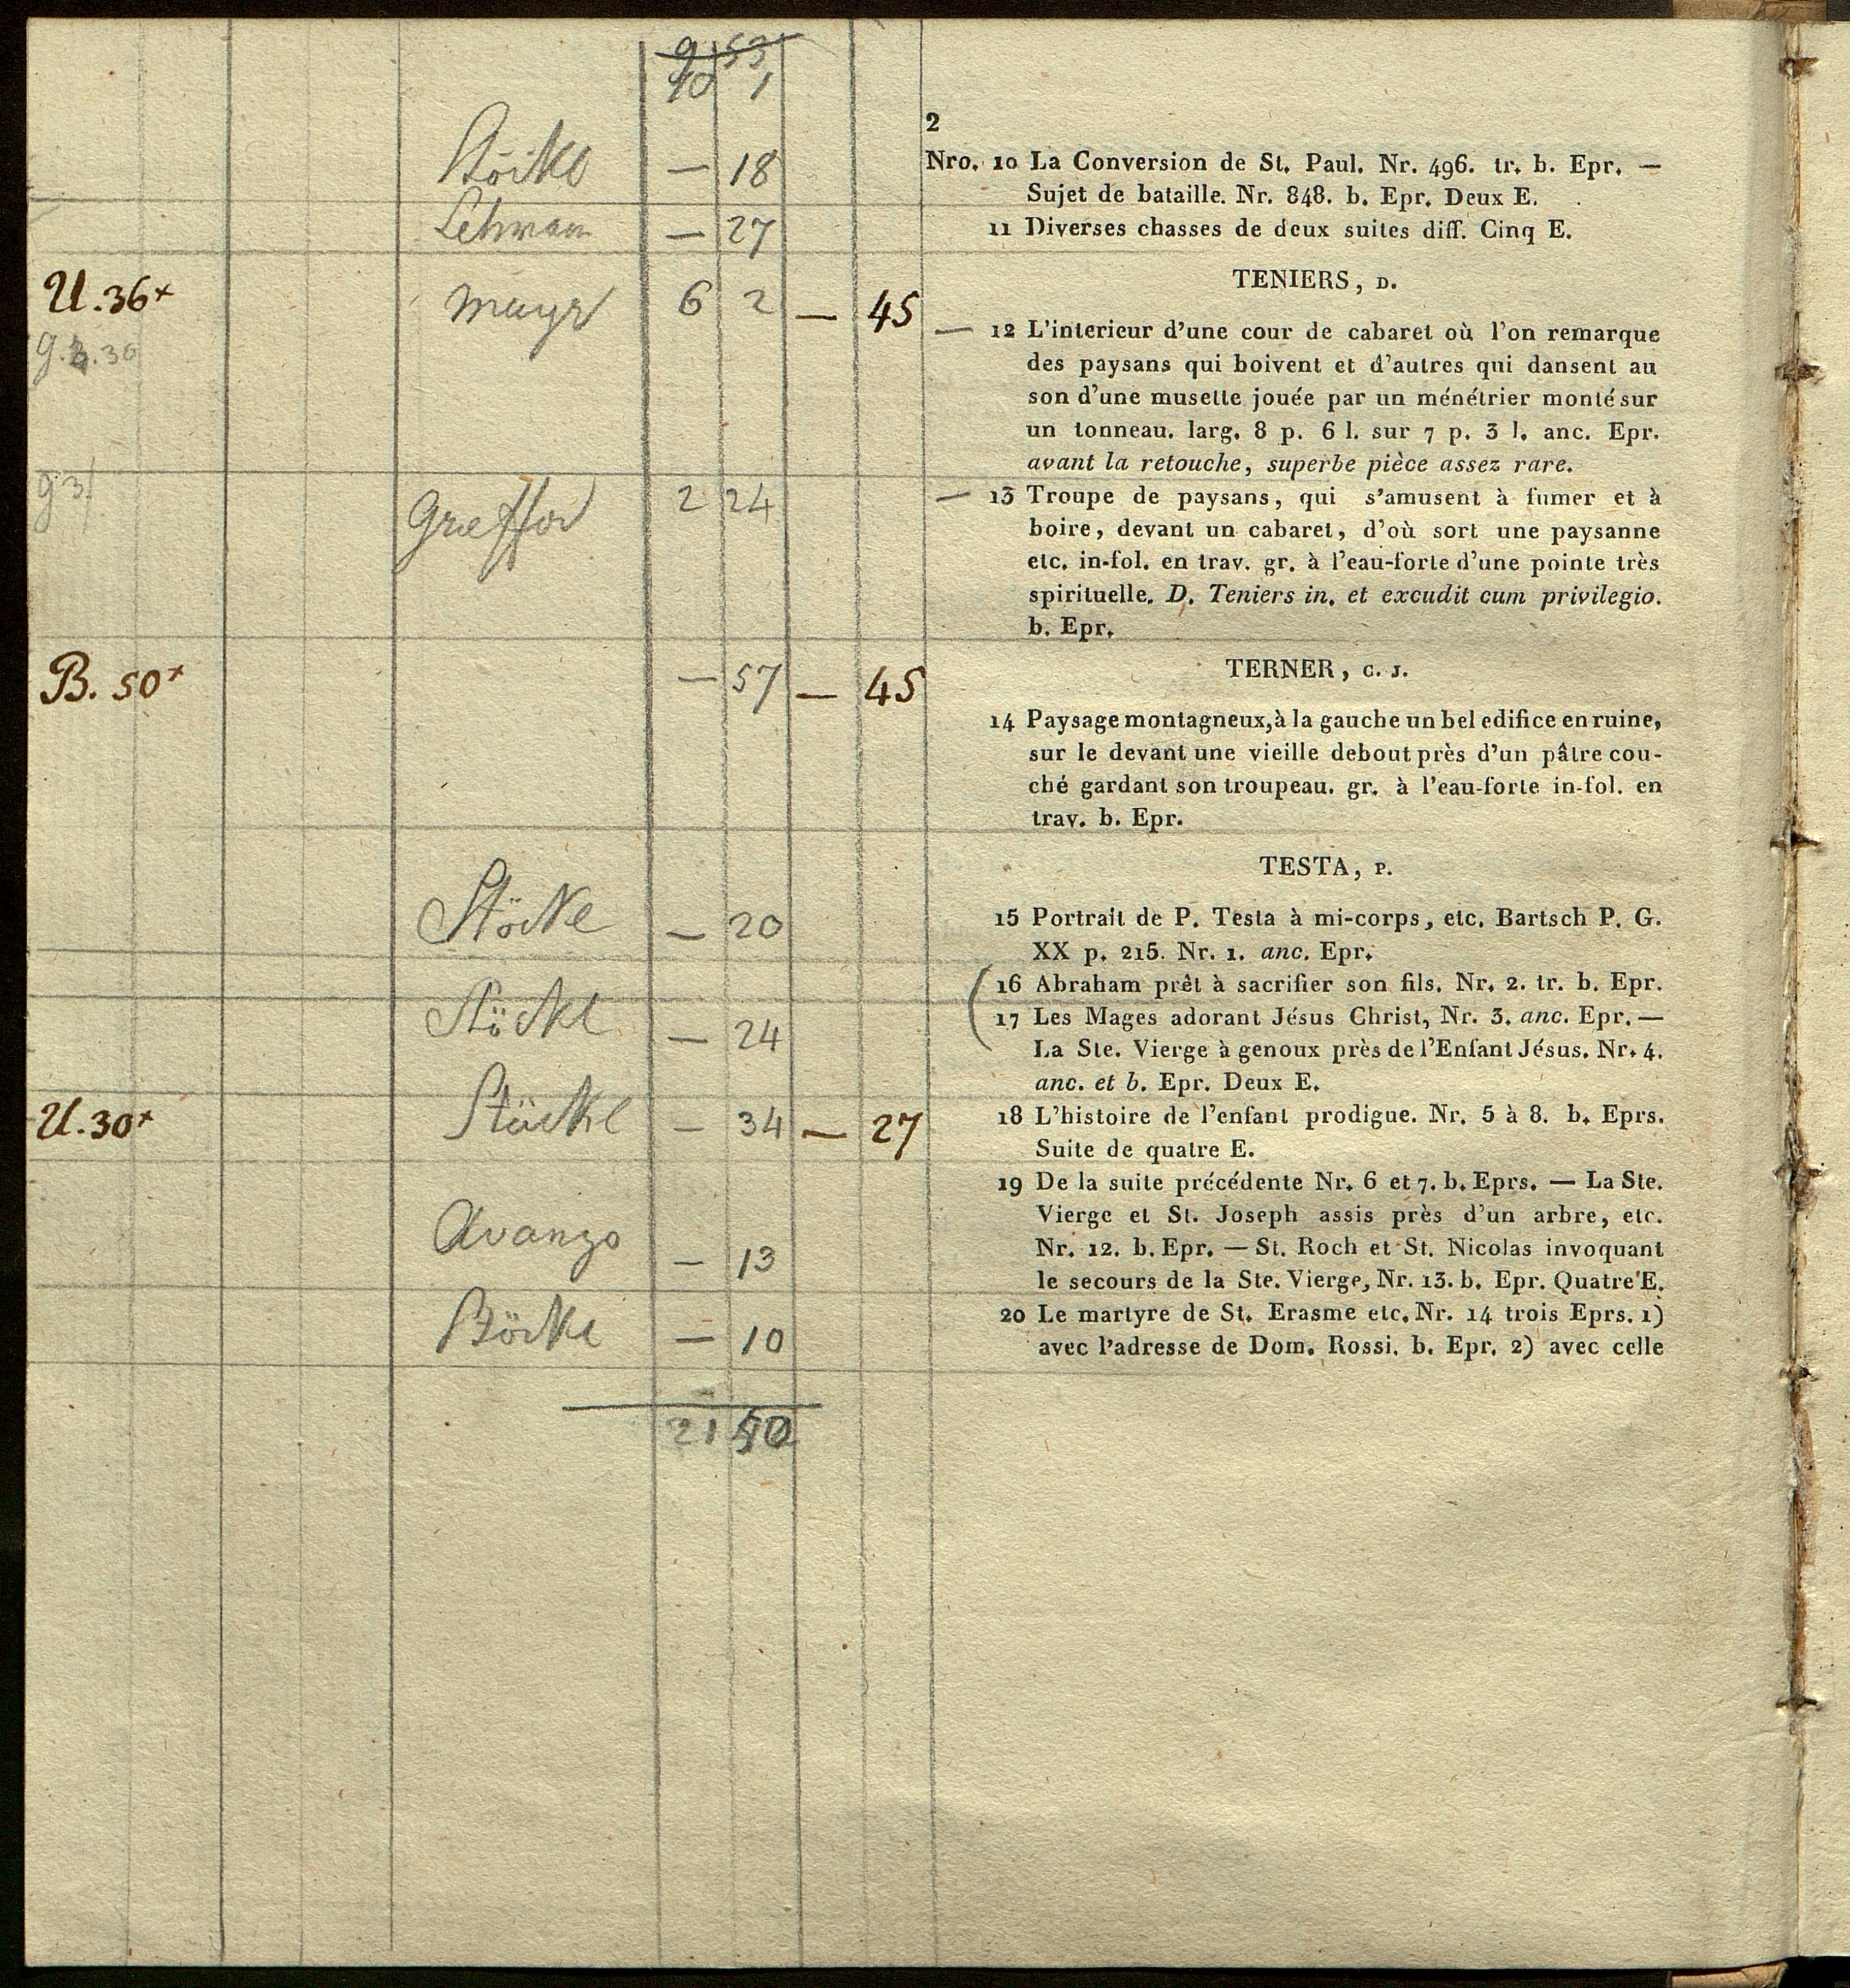 9 53
10 1
2
Stöckl — 18
Nro. 10 La Conversion de St. Paul. Nr. 496. tr. b. Epr. —
Sujet de bataille. Nr. 848. b. Epr. Deux E.
Lehmann — 27
11 Diverses chasses de deux suites diff. Cinq E.
TENIERS, D.
U. 36+ Mayr 6 2 — 45
g. 36
— 12 L'interieur d'une cour de cabaret où l'on remarque
des paysans qui boivent et d'autres qui dansent au
son d'une musette jouée par un ménétrier monté sur
un tonneau. larg. 8 p. 6 l. sur 7 p. 3 l. anc. Epr.
avant la retouche, superbe pièce assez rare.
g 3 2 24
— 13 Troupe de paysans, qui s'amusent à fumer et à
boire, devant un cabaret, d'où sort une paysanne
etc. in-fol. en trav. gr. à l'eau-forte d'une pointe très
spirituelle. D. Teniers in. et excudit cum privilegio.
b. Epr.
TERNER, C. J.
B. 50+ — 57 — 45
14 Paysage montagneux, à la gauche un bel edifice en ruine,
sur le devant une vieille debout près d'un pâtre cou-
ché gardant son troupeau. gr. à l'eau-forte in-fol. en
trav. b. Epr.
TESTA, P.
Stöckl — 20
15 Portrait de P. Testa à mi-corps, etc. Bartsch P. G.
XX p. 215. Nr. 1. anc. Epr.
16 Abraham prêt à sacrifier son fils. Nr. 2. tr. b. Epr.
Stöckl — 24
17 Les Mages adorant Jésus Christ, Nr. 3. anc. Epr. —
La Ste. Vierge à genoux près de l'Enfant Jésus. Nr. 4.
anc. et b. Epr. Deux E.
U. 30+ Stöckl — 34 — 27
18 L'histoire de l'enfant prodigue. Nr. 5 à 8. b. Eprs.
Suite de quatre E.
Avanzo — 13
19 De la suite précédente Nr. 6 et 7. b. Eprs. — La Ste.
Vierge et St. Joseph assis près d'un arbre, etc.
Nr. 12. b. Epr. — St. Roch et St. Nicolas invoquant
le secours de la Ste. Vierge, Nr. 13. b. Epr. Quatre E.
Stöckl — 10
20 Le martyre de St. Erasme etc. Nr. 14 trois Eprs. 1)
avec l'adresse de Dom. Rossi. b. Epr. 2) avec celle
21